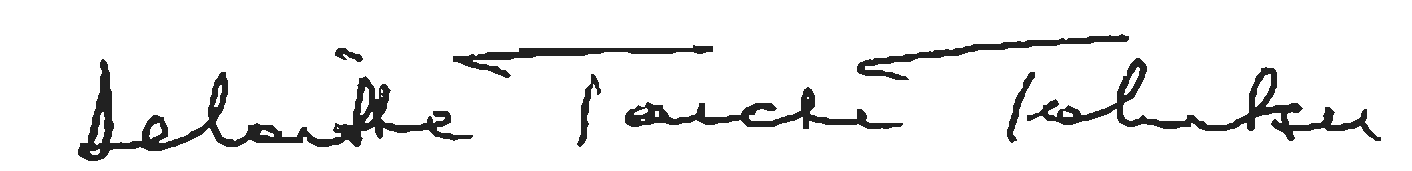 Deloitte Touche Tohmatsu